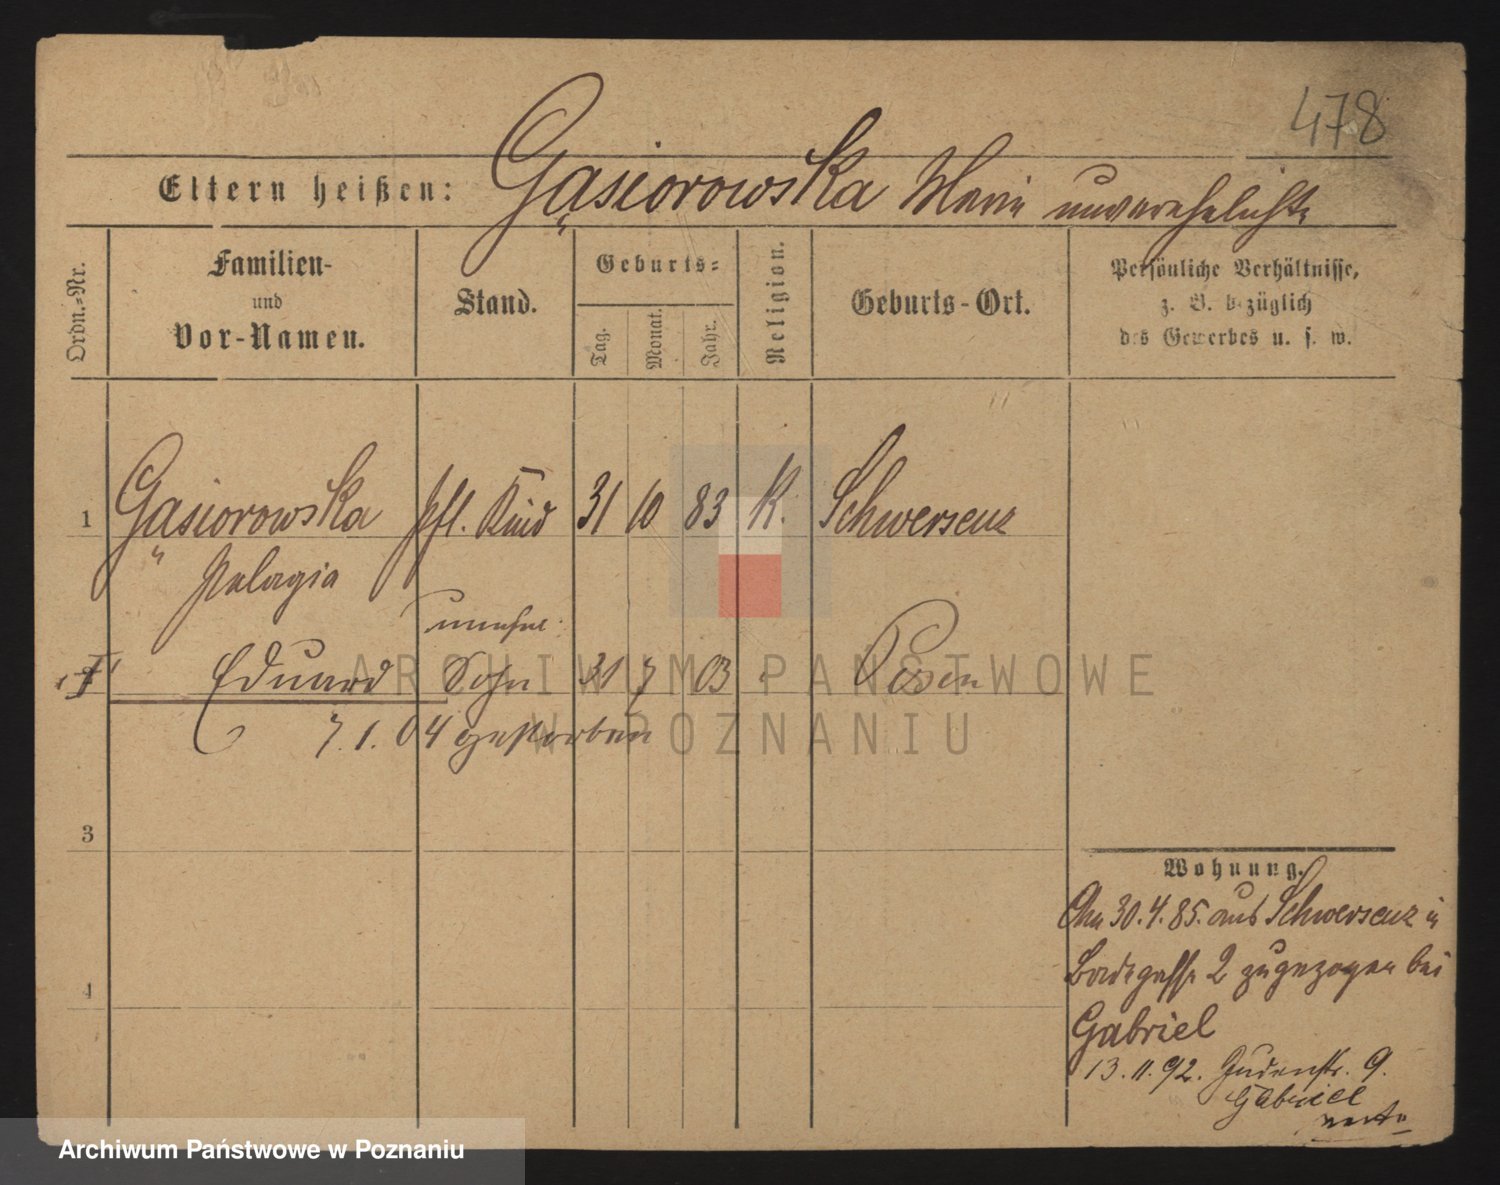 478
Eltern heißen: Gąsiorowska Marie unverehelichte
Ordn.-Nr.
Familien-
und
Vor-Namen.
Stand.
Geburts-
Tag.
Monat.
Jahr.
Religion.
Geburts-Ort.
Persönliche Verhältnisse,
z. B. bezüglich
des Gewerbes u. s. w.
1 Gąsiorowska pfl. Kind 31 10 83 K. Schwersenz
Pelagia
unehel.
Eduard Sohn 31 7 03 Posen
7.1.04 gestorben
3
4
Wohnung.
Am 30.4.85. aus Schwersenz in
2 zugezogen bei
Gabriel
13.11.92. Judenstr. 9.
Gabriel
ARCHIWUM PAŃSTWOWE
W POZNANIU
Archiwum Państwowe w Poznaniu